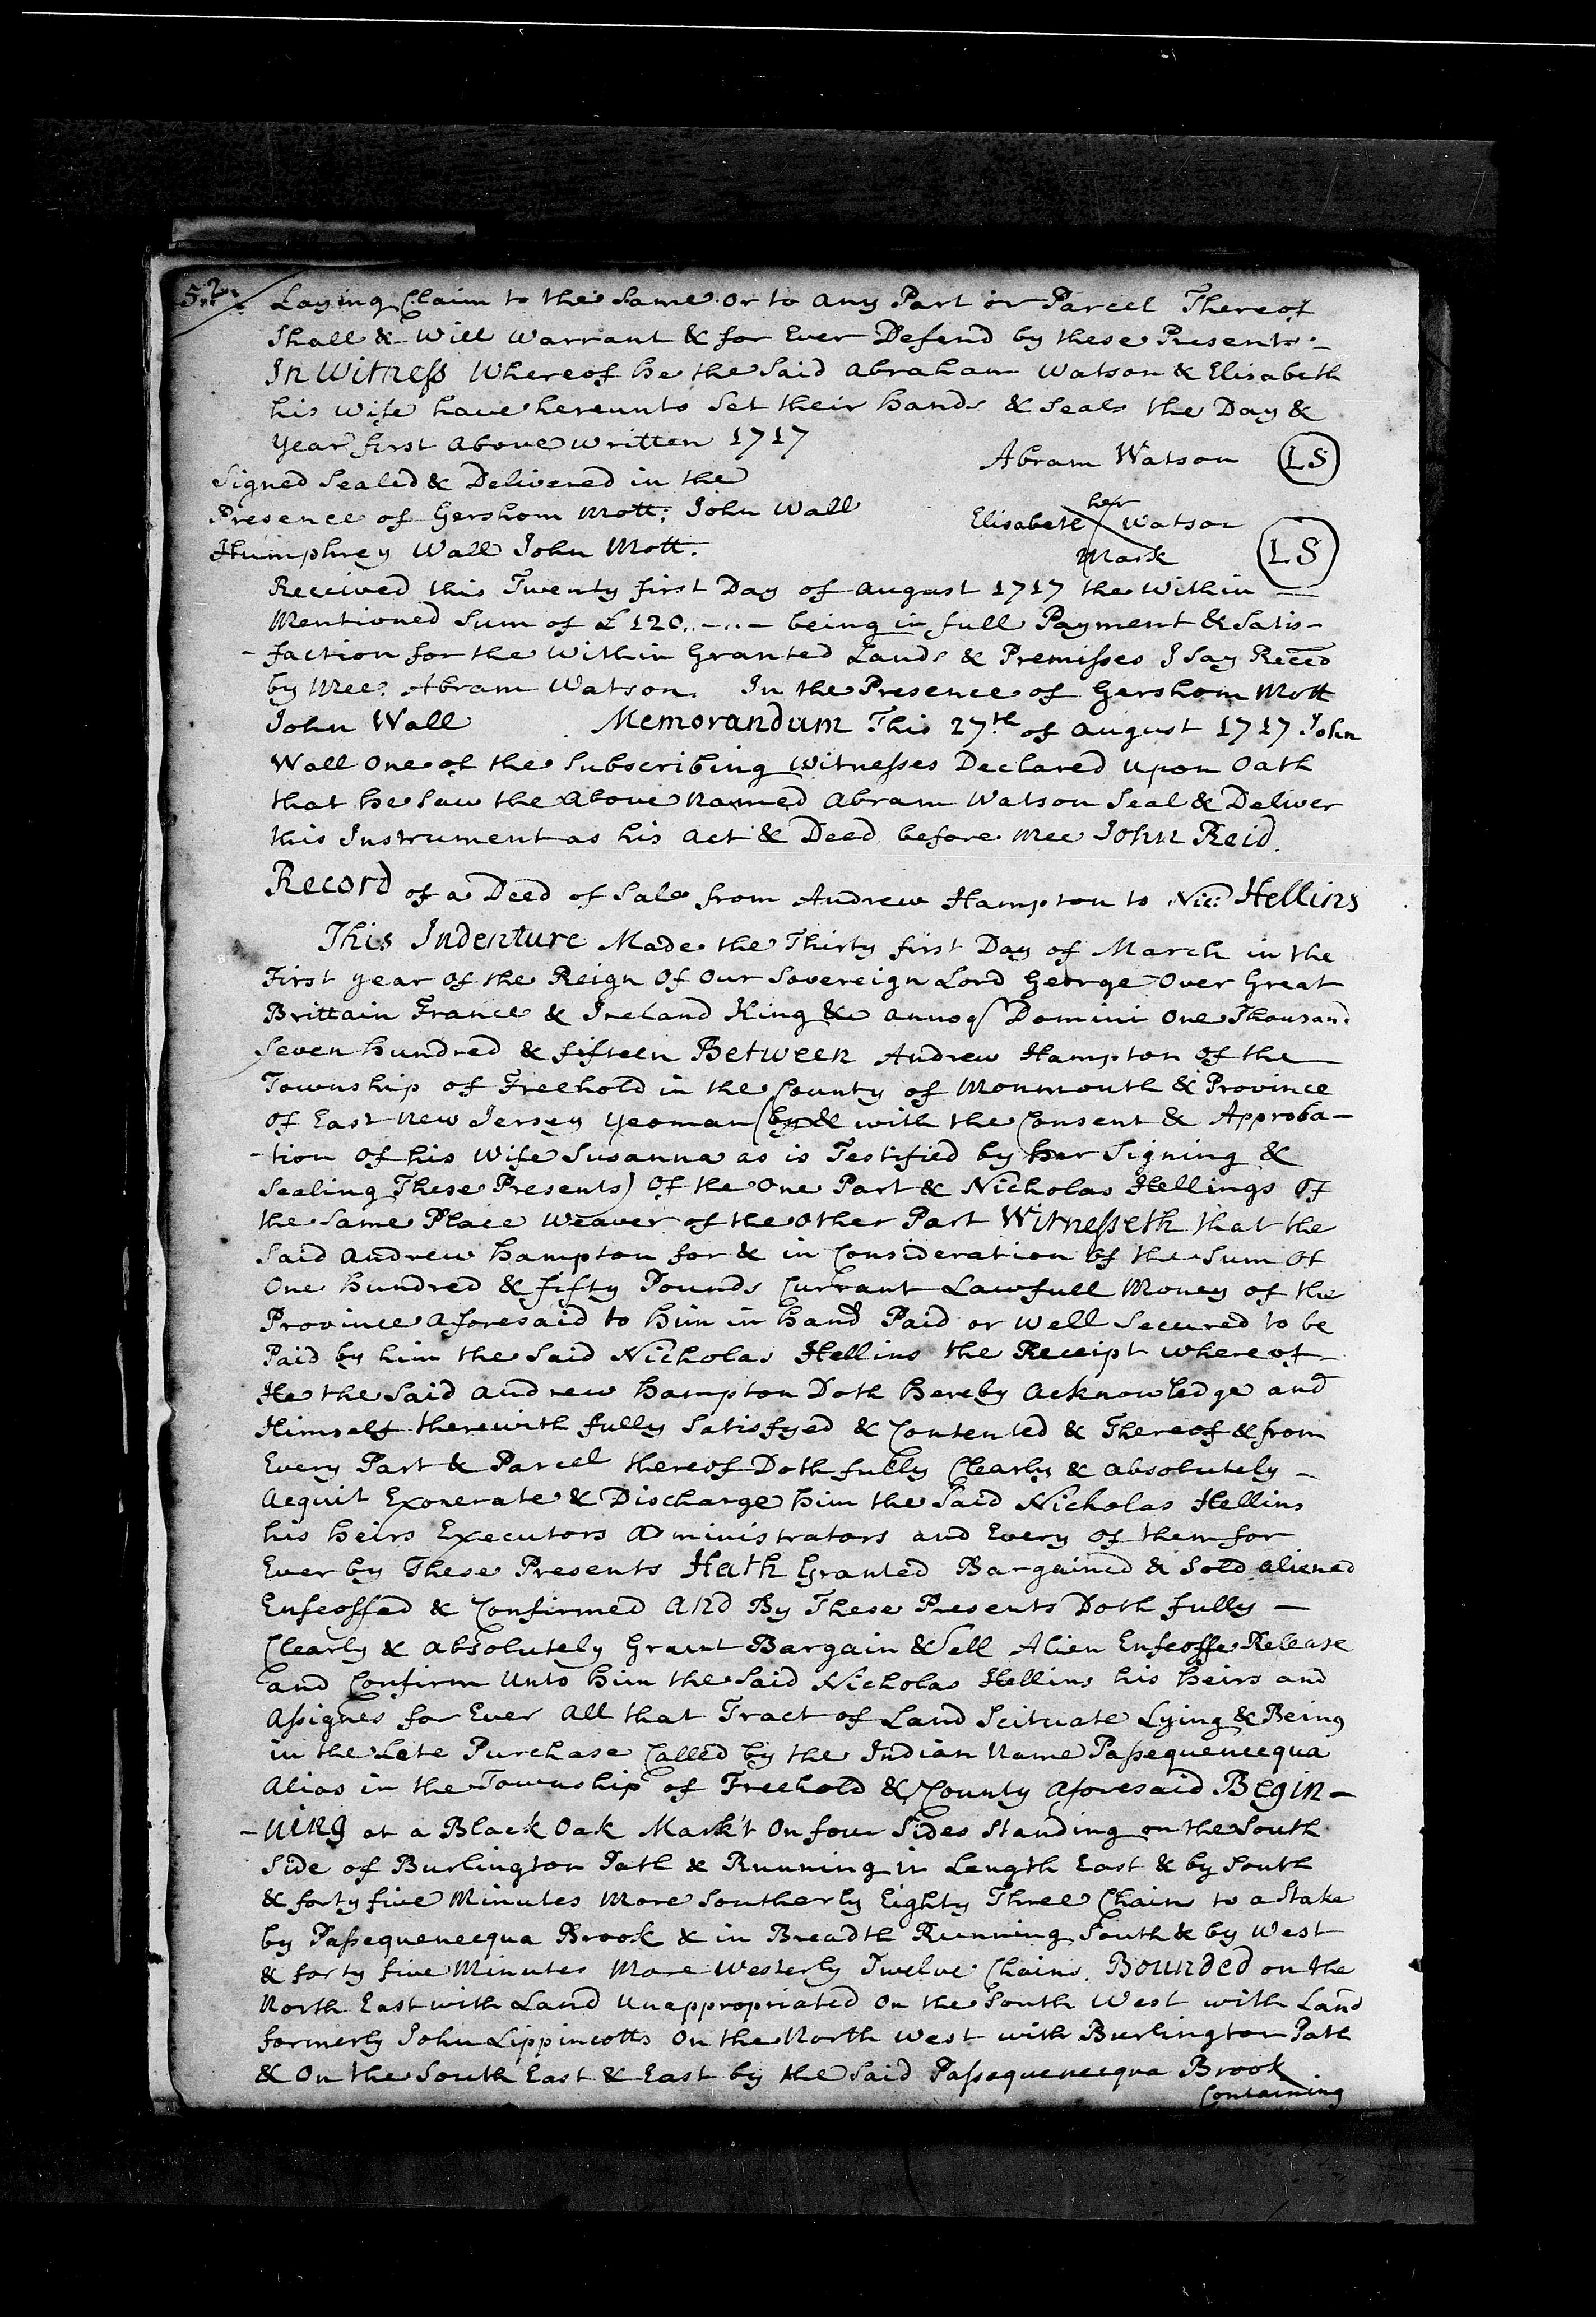 52
Laying Claim to the Same or to any Part or Parcel Thereof
Shall & Will Warrant & for Ever Defend by these Presents.
In Witness Whereof he the Said Abraham Watson & Elisabeth
his Wife have hereunto Set their hands & Seals the Day &
Year first above written 1717
Abram Watson LS
Signed Sealed & Delivered in the
Presence of Gershom Mott: John Wall
Humphrey Wall John Mott.
Elisabeth her X Watson
Mark LS
Received this Twenty first Day of August 1717 the Within
Mentioned Sum of £120..-..- being in full Payment & Satis-
-faction for the Within Granted Lands & Premisses I Say Reced
by Mee: Abram Watson. In the Presence of Gershom Mott
John Wall Memorandum This 27th of August 1717 John
Wall One of the Subscribing Witnesses Declared Upon Oath
that he Saw the Above Named Abram Watson Seal & Deliver
this Instrument as his act & Deed before mee John Reid.
Record of a Deed of Sale from Andrew Hampton to Nic: Hellins
This Indenture Made the Thirty first Day of March in the
First year Of the Reign Of Our Sovereign Lord George Over Great
Brittain France & Ireland King &c annoq Domini One Thousand
Seven hundred & fifteen Between Andrew Hampton Of the
Township of Freehold in the County of Monmouth & Province
Of East New Jersey Yeoman (by & with the Consent & Approba-
-tion Of his Wife Susanna as is Testified by her Signing &
Sealing These Presents) Of the One Part & Nicholas Hellings Of
the Same Place Weaver of the Other Part Witnesseth that the
Said Andrew Hampton for & in Consideration Of the Sum Of
One hundred & fifty Pounds Currant Lawfull Money of the
Province aforesaid to him in hand Paid or Well Secured to be
Paid by him the Said Nicholas Hellins the Receipt whereof
He the Said Andrew Hampton Doth hereby Acknowledge and
Himself therewith fully Satisfyed & Contented & Thereof & from
Every Part & Parcel thereof Doth fully Clearly & absolutely -
Acquit Exonerate & Discharge him the Said Nicholas Hellins
his heirs Executors Administrators and Every Of them for
Ever by These Presents Hath Granted Bargained & Sold aliened
Enfeoffed & Confirmed And By These Presents Doth fully -
Clearly & absolutely Grant Bargain & Sell Alien Enfeoffe Release
and Confirm Unto him the Said Nicholas Hellins his heirs and
Assignes for Ever All that Tract of Land Scituate Lying & Being
in the Late Purchase Called by the Indian Name Passequenecqua
Alias in the Township of Freehold & County aforesaid Begin-
-ning at a Black Oak Mark't On four Sides Standing on the South
Side of Burlington Path & Running in Length East & by South
& forty five Minutes More Southerly Eighty Three Chains to a Stake
by Passequenecqua Brook & in Breadth Running South & by West
& forty five Minutes More Westerly Twelve Chains. Bounded on the
North East with Land Unappropriated On the South West with Land
formerly John Lippincotts On the North West with Burlington Path
& On the South East & East by the Said Passequenecqua Brook
Containing